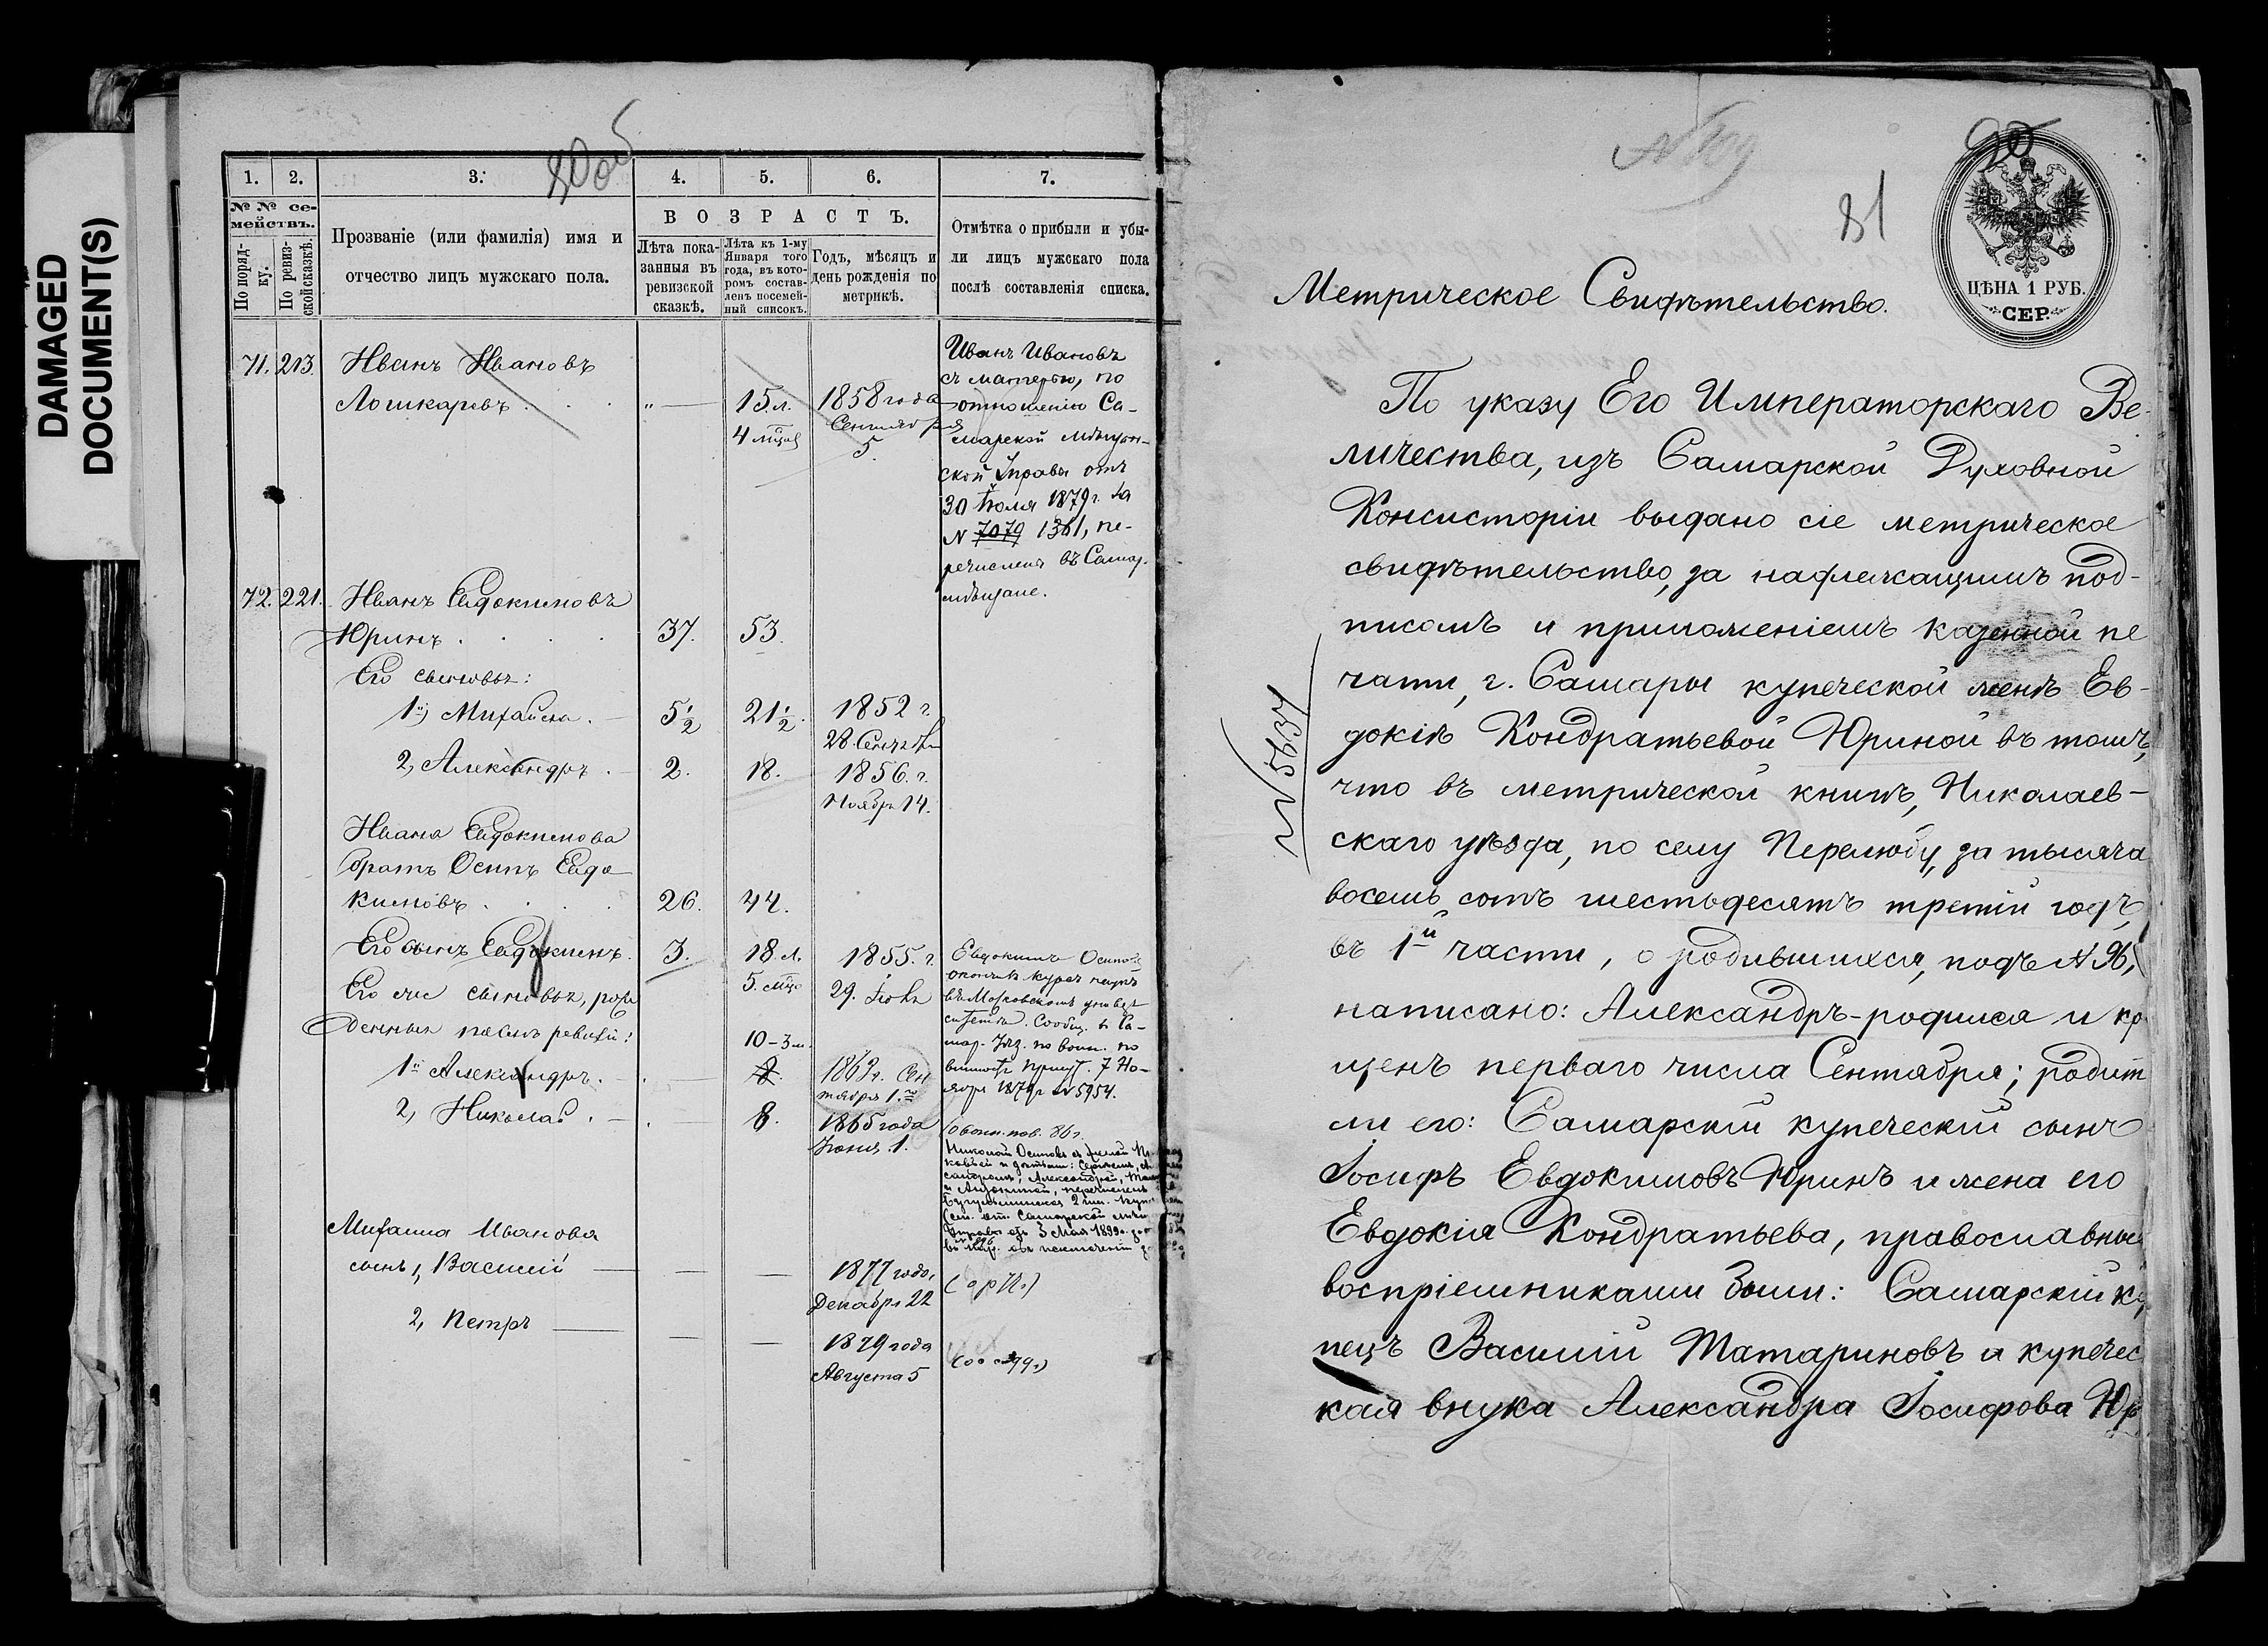 DAMAGED
DOCUMENT(S)
80 об
1. 2. 3. 4. 5. 6. 7.
№ № се-
мействъ.
По поряд-
ку.
По ревиз-
ской сказкѣ.
Прозваніе (или фамилія) имя и
отчество лицъ мужскаго пола.
ВОЗРАСТЪ.
Лѣта пока-
занныя въ
ревизской
сказкѣ.
Лѣта къ 1-му
Января того
года, въ кото-
ромъ состав-
ленъ посемей-
ный списокъ.
Годъ, мѣсяцъ и
день рожденія по
метрикѣ.
Отмѣтка о прибыли и убы-
ли лицъ мужскаго пола
послѣ составленія списка.
71. 213. Иванъ Ивановъ
Лошкаревъ . . . „ — 15 л. 1858 года
4 мѣс Сентября
5.
Иванъ Ивановъ
съ матерью, по
отношенію Са-
марской мѣщан-
ской Управы отъ
30 Іюля 1879 г. за
N 7079 1361, пе-
речисленъ въ Самар.
мѣщане.
72. 221. Иванъ Евдокимовъ
Юринъ . . . . 37. 53.
Его сыновья:
1й, Михайла . 5½ 21½. 1852 г.
28 Сентября
2, Александръ . 2. 18. 1856. г.
Ноября 14.
Ивана Евдокимова
братъ Осипъ Евдо
кимовъ . . . . 26. 44.
Его сынъ Евдокимъ. 3. 18. л. 1855. г.
5. мѣс 29. Іюля
Его же сыновья, рож
денныя послѣ ревизіи:
10-3 м.
1й Александръ. 8. 1863 г. Сен
тября 1.го
2, Николай . 8. 1865 года
Іюня 1.
Евдокимъ Осиповъ
окончилъ курсъ наукъ
въ Московскомъ универ
ситетѣ. Сообщ. въ Са-
мар. Уѣз. по воин. по
винности прису. 7 Но-
ября 1879 г. N 5954.
о воин. пов. 86 г.
Николай Осиповъ съ женой
и дѣтьми: Сергѣемъ,
Александрой,
перечисленъ
отъ 3 Мая 1899 г.
Михаила Иванова
сынъ 1, Василій — — — 1877 года,
Декабря 22
2, Петръ — — — 1879 года
Августа 5
N 109
90
81
ЦѢНА 1 РУБ.
СЕР.
Метрическое Свидѣтельство.
По указу Его Императорскаго Ве-
личества, изъ Самарской Духовной
Консисторіи выдано сіе метрическое
свидѣтельство, за надлежащимъ под-
писомъ и приложеніемъ казенной пе
чати, г. Самары купеческой женѣ Ев-
докіѣ Кондратьевой Юриной въ томъ,
что въ метрической книгѣ, Николаев-
скаго уѣзда, по селу Перелюбу, за тысяча
восемь сотъ шестьдесятъ третій годъ,
въ 1й части, о родившихся, подъ N 96,
написано: Александръ-родился и кр
щенъ перваго числа Сентября; родит
ли его: Самарскій купеческій сынъ
Іосифъ Евдокимовъ Юринъ и жена его
Евдокія Кондратьева, православные
воспріемниками были: Самарскій ку
пецъ Василій Татариновъ и купечес
кая внука Александра Іосифова Юр
N 5537